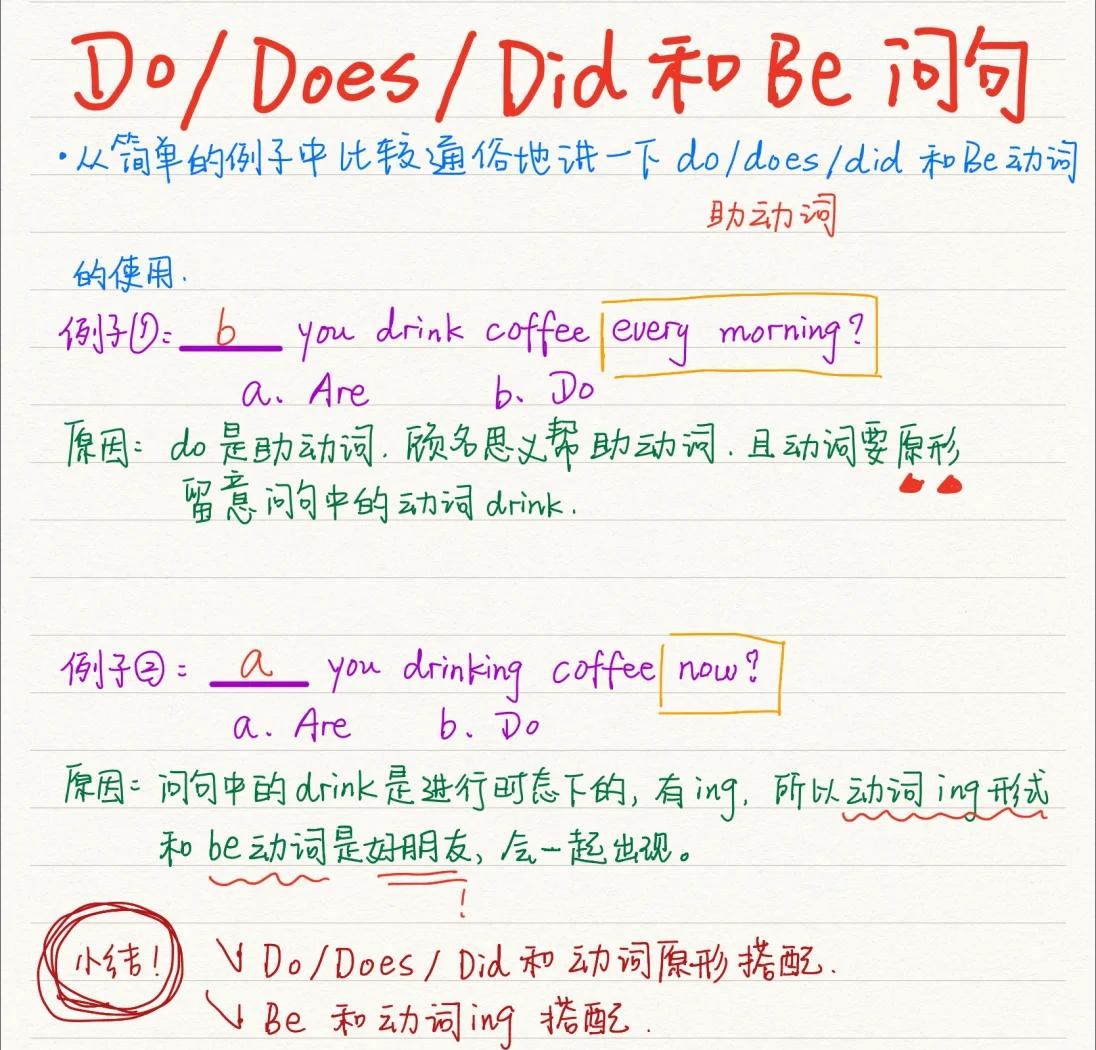 Do/Does/Did 和 Be 问句
•从简单的例子中比较通俗地讲一下 do/does/did 和 Be 动词
助动词
的使用.
例子①: b you drink coffee every morning?
a. Are b. Do
原因: do 是助动词. 顾名思义帮助动词. 且动词要原形
留意问句中的动词 drink.
例子②: a you drinking coffee now?
a. Are b. Do
原因: 问句中的 drink 是进行时态下的, 有 ing, 所以动词 ing 形式
和 be 动词是好朋友, 会一起出现。
!
小结! Do/Does/Did 和 动词原形 搭配.
Be 和动词ing 搭配.